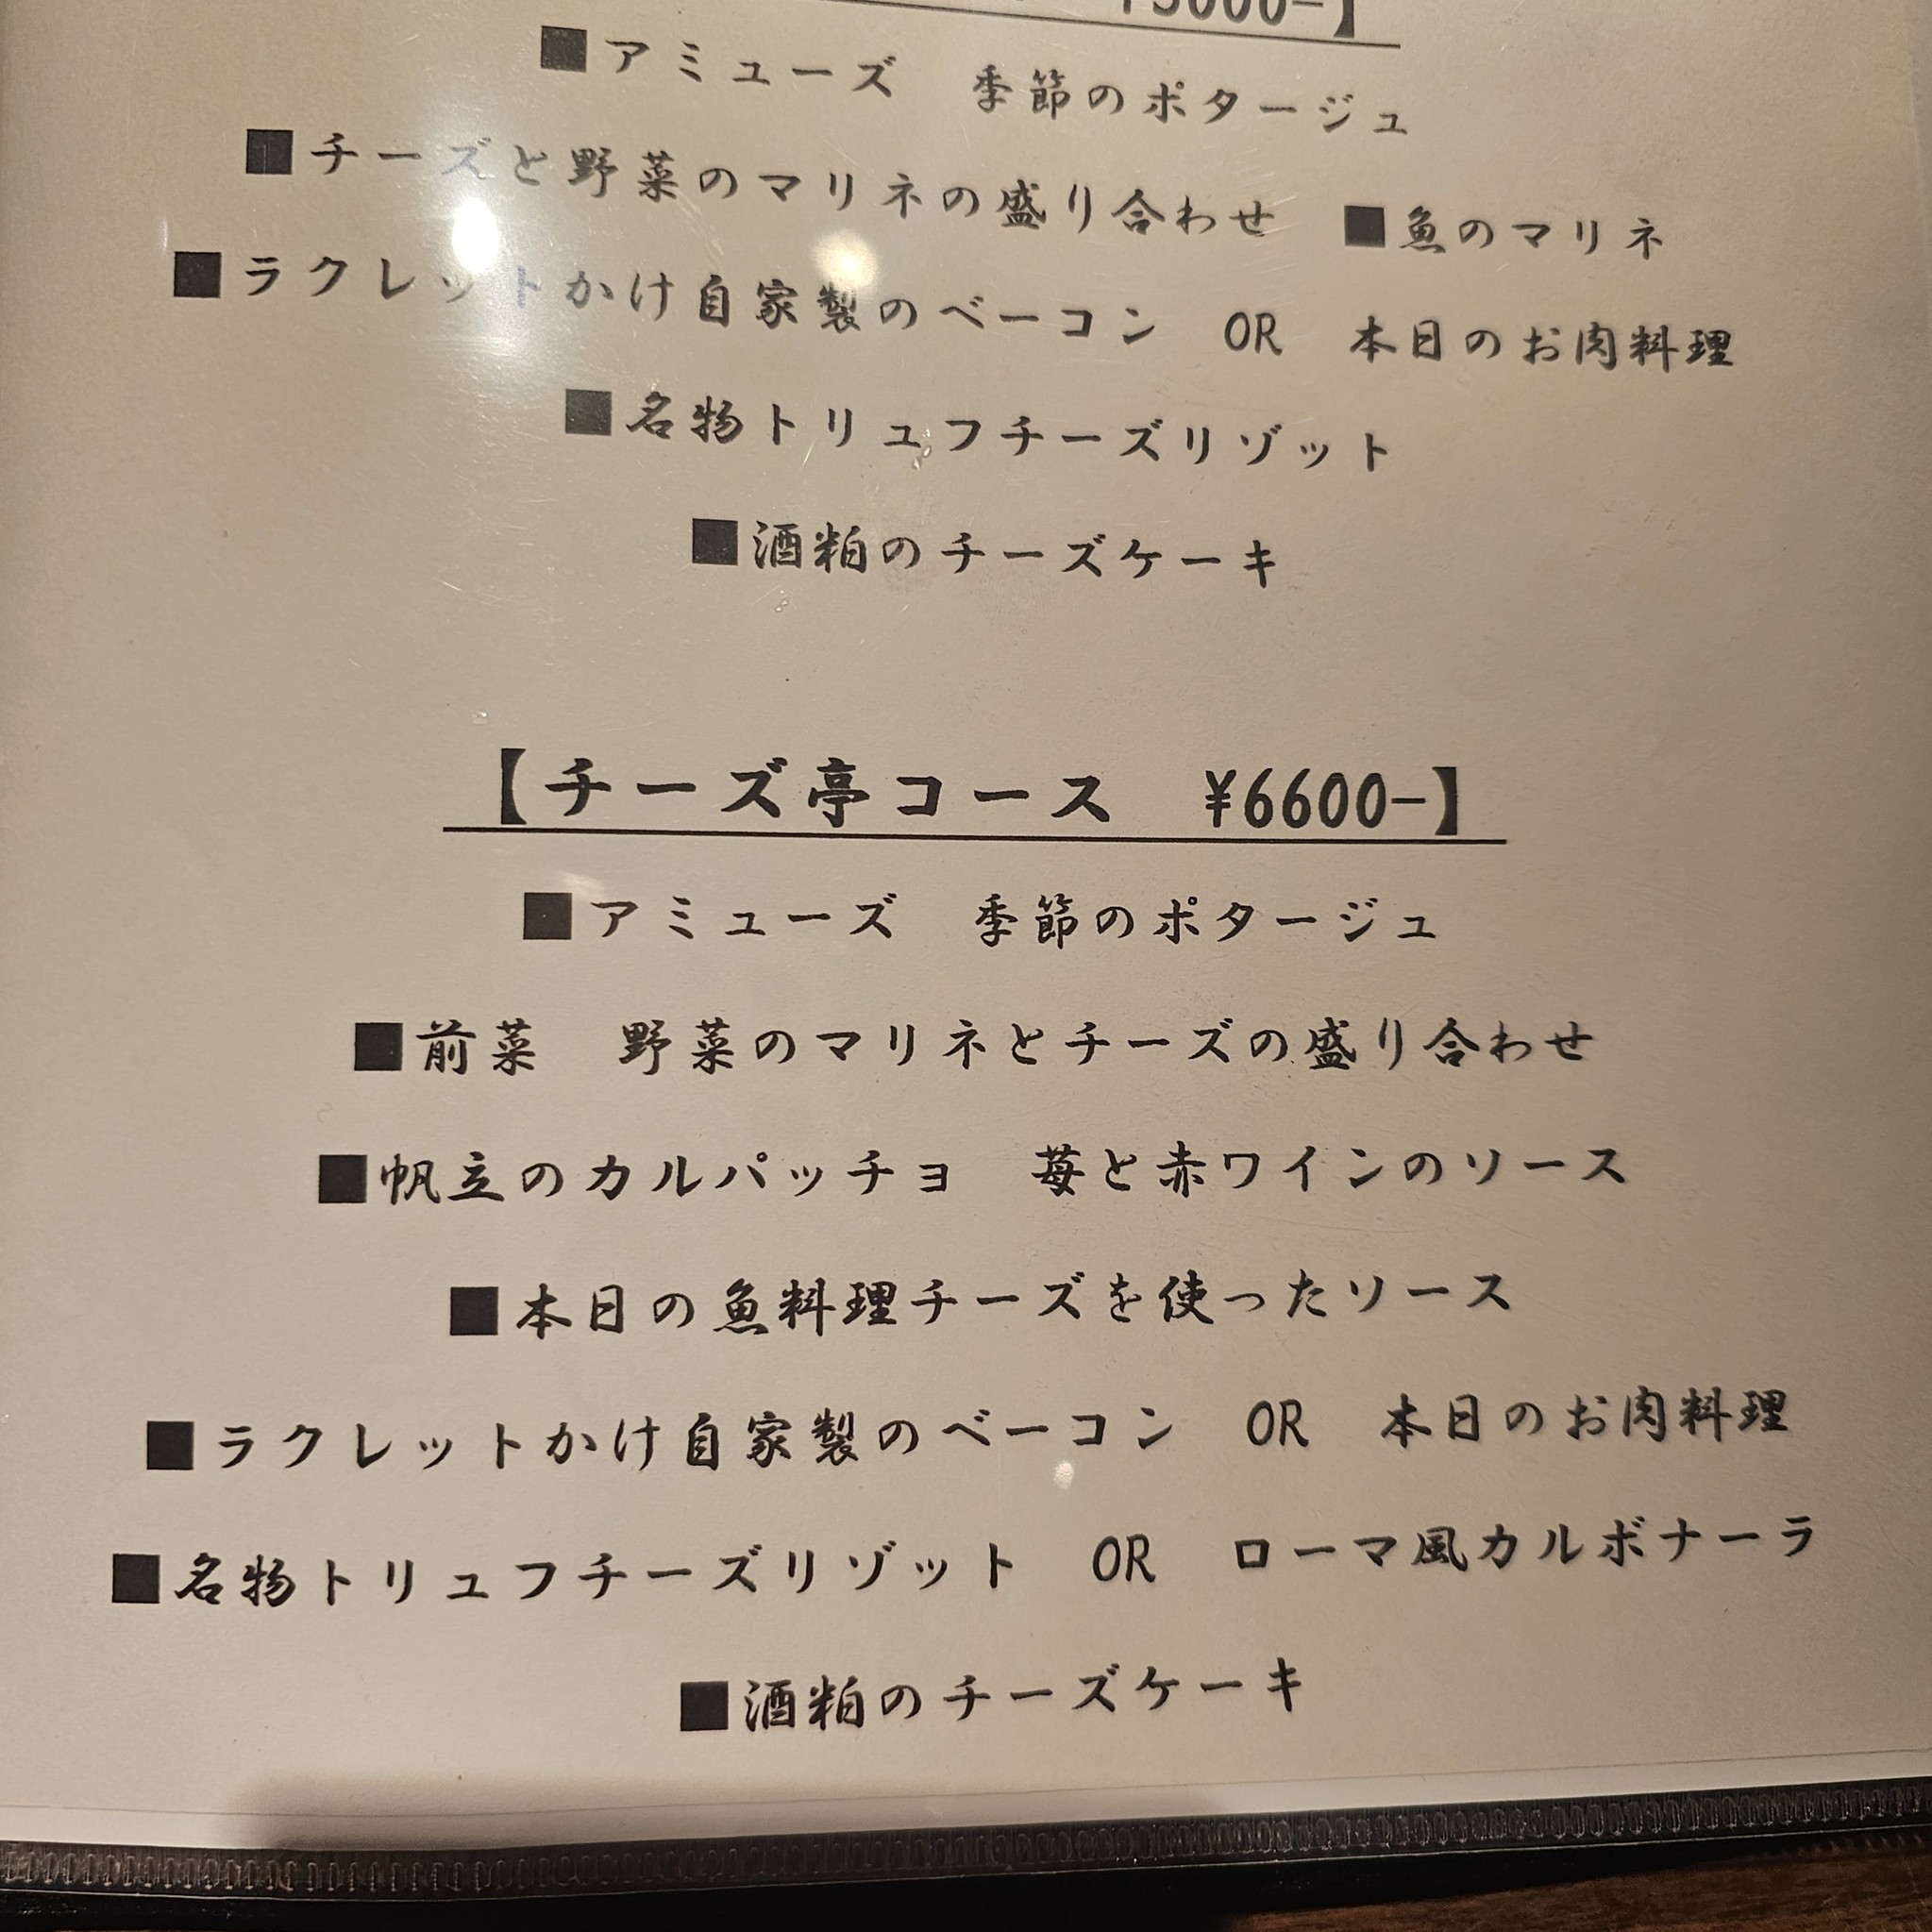 ¥5000-】
■アミューズ　季節のポタージュ
■チーズと野菜のマリネの盛り合わせ　■魚のマリネ
■ラクレットかけ自家製のベーコン　OR　本日のお肉料理
■名物トリュフチーズリゾット
■酒粕のチーズケーキ
【チーズ亭コース　¥6600-】
■アミューズ　季節のポタージュ
■前菜　野菜のマリネとチーズの盛り合わせ
■帆立のカルパッチョ　苺と赤ワインのソース
■本日の魚料理チーズを使ったソース
■ラクレットかけ自家製のベーコン　OR　本日のお肉料理
■名物トリュフチーズリゾット　OR　ローマ風カルボナーラ
■酒粕のチーズケーキ